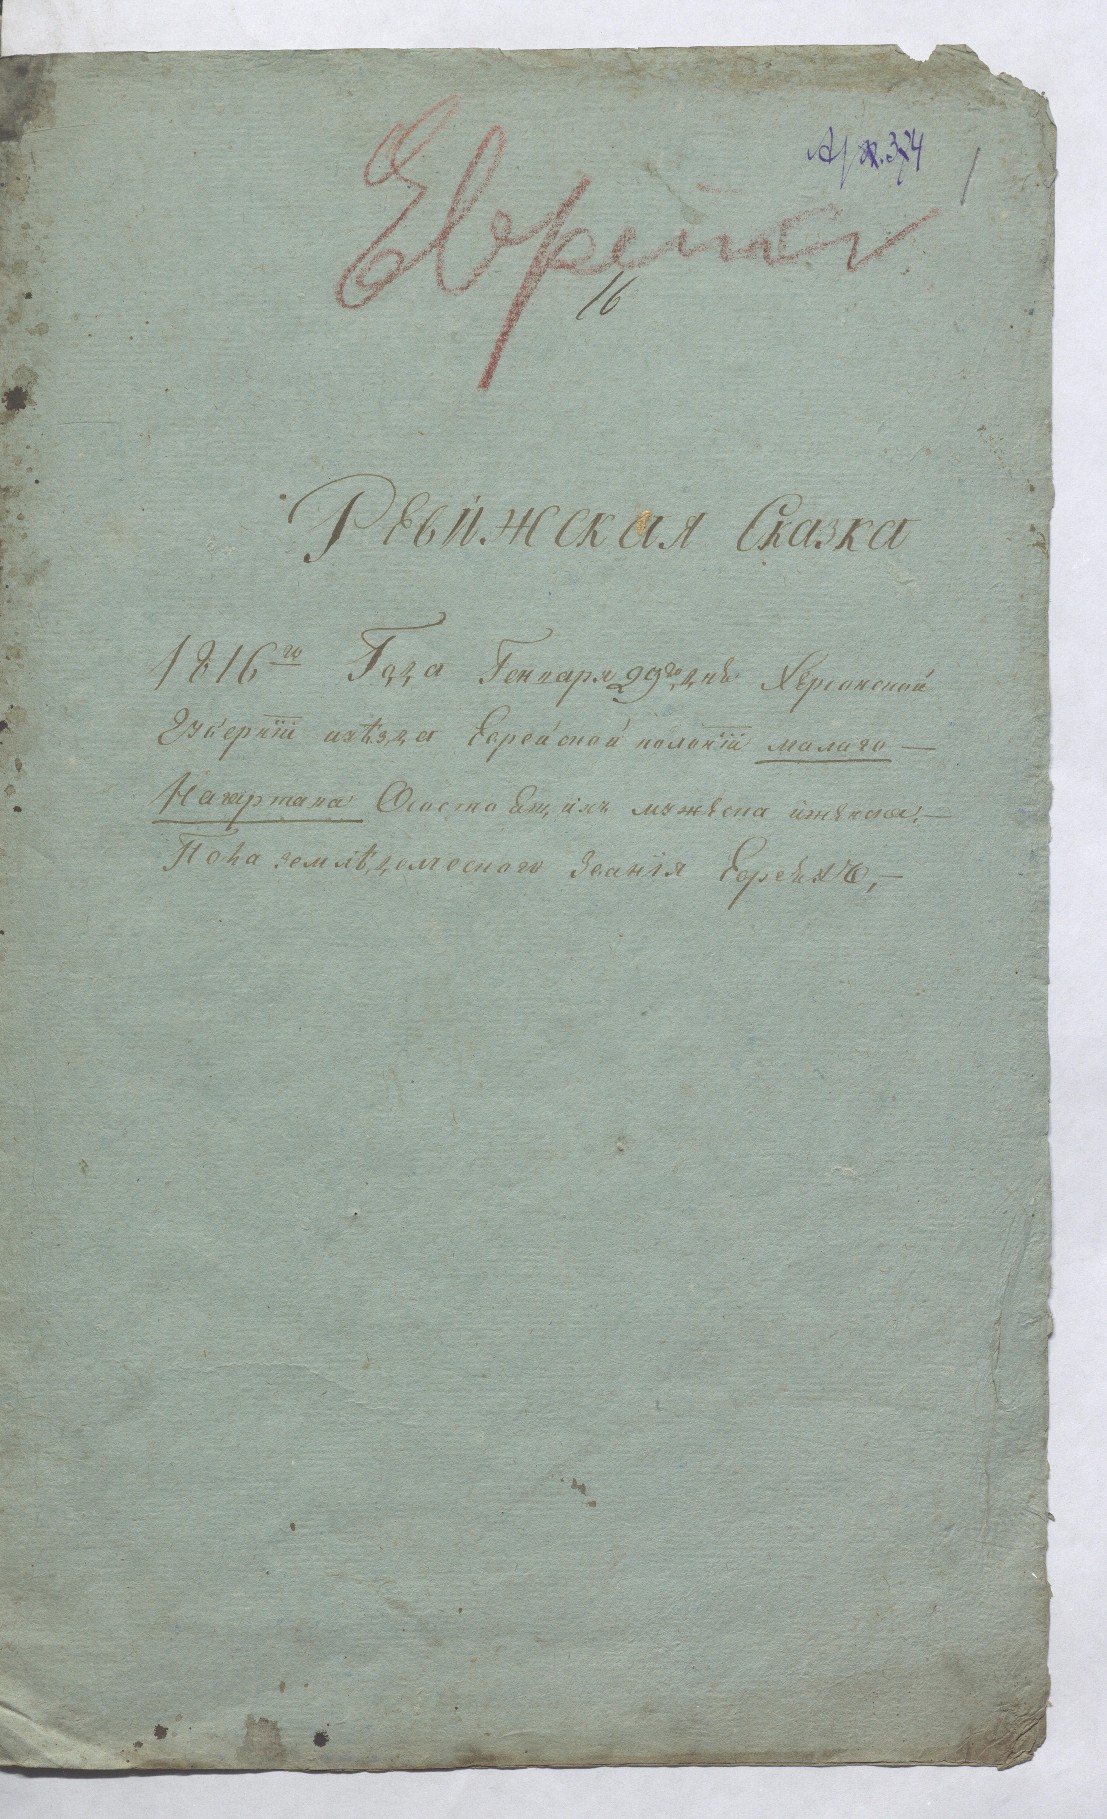 Арк. 374
1
Евреи
16
Ревижская Сказка
1816го Года Генваря 29го днѣ Херсонской
Губернїи уѣзда Еврейской колонїи малаго —
Нагартава О состо Ещихъ мужеска ижѣнска,—
Пола землѣделческого Званїя Евреихъ,—